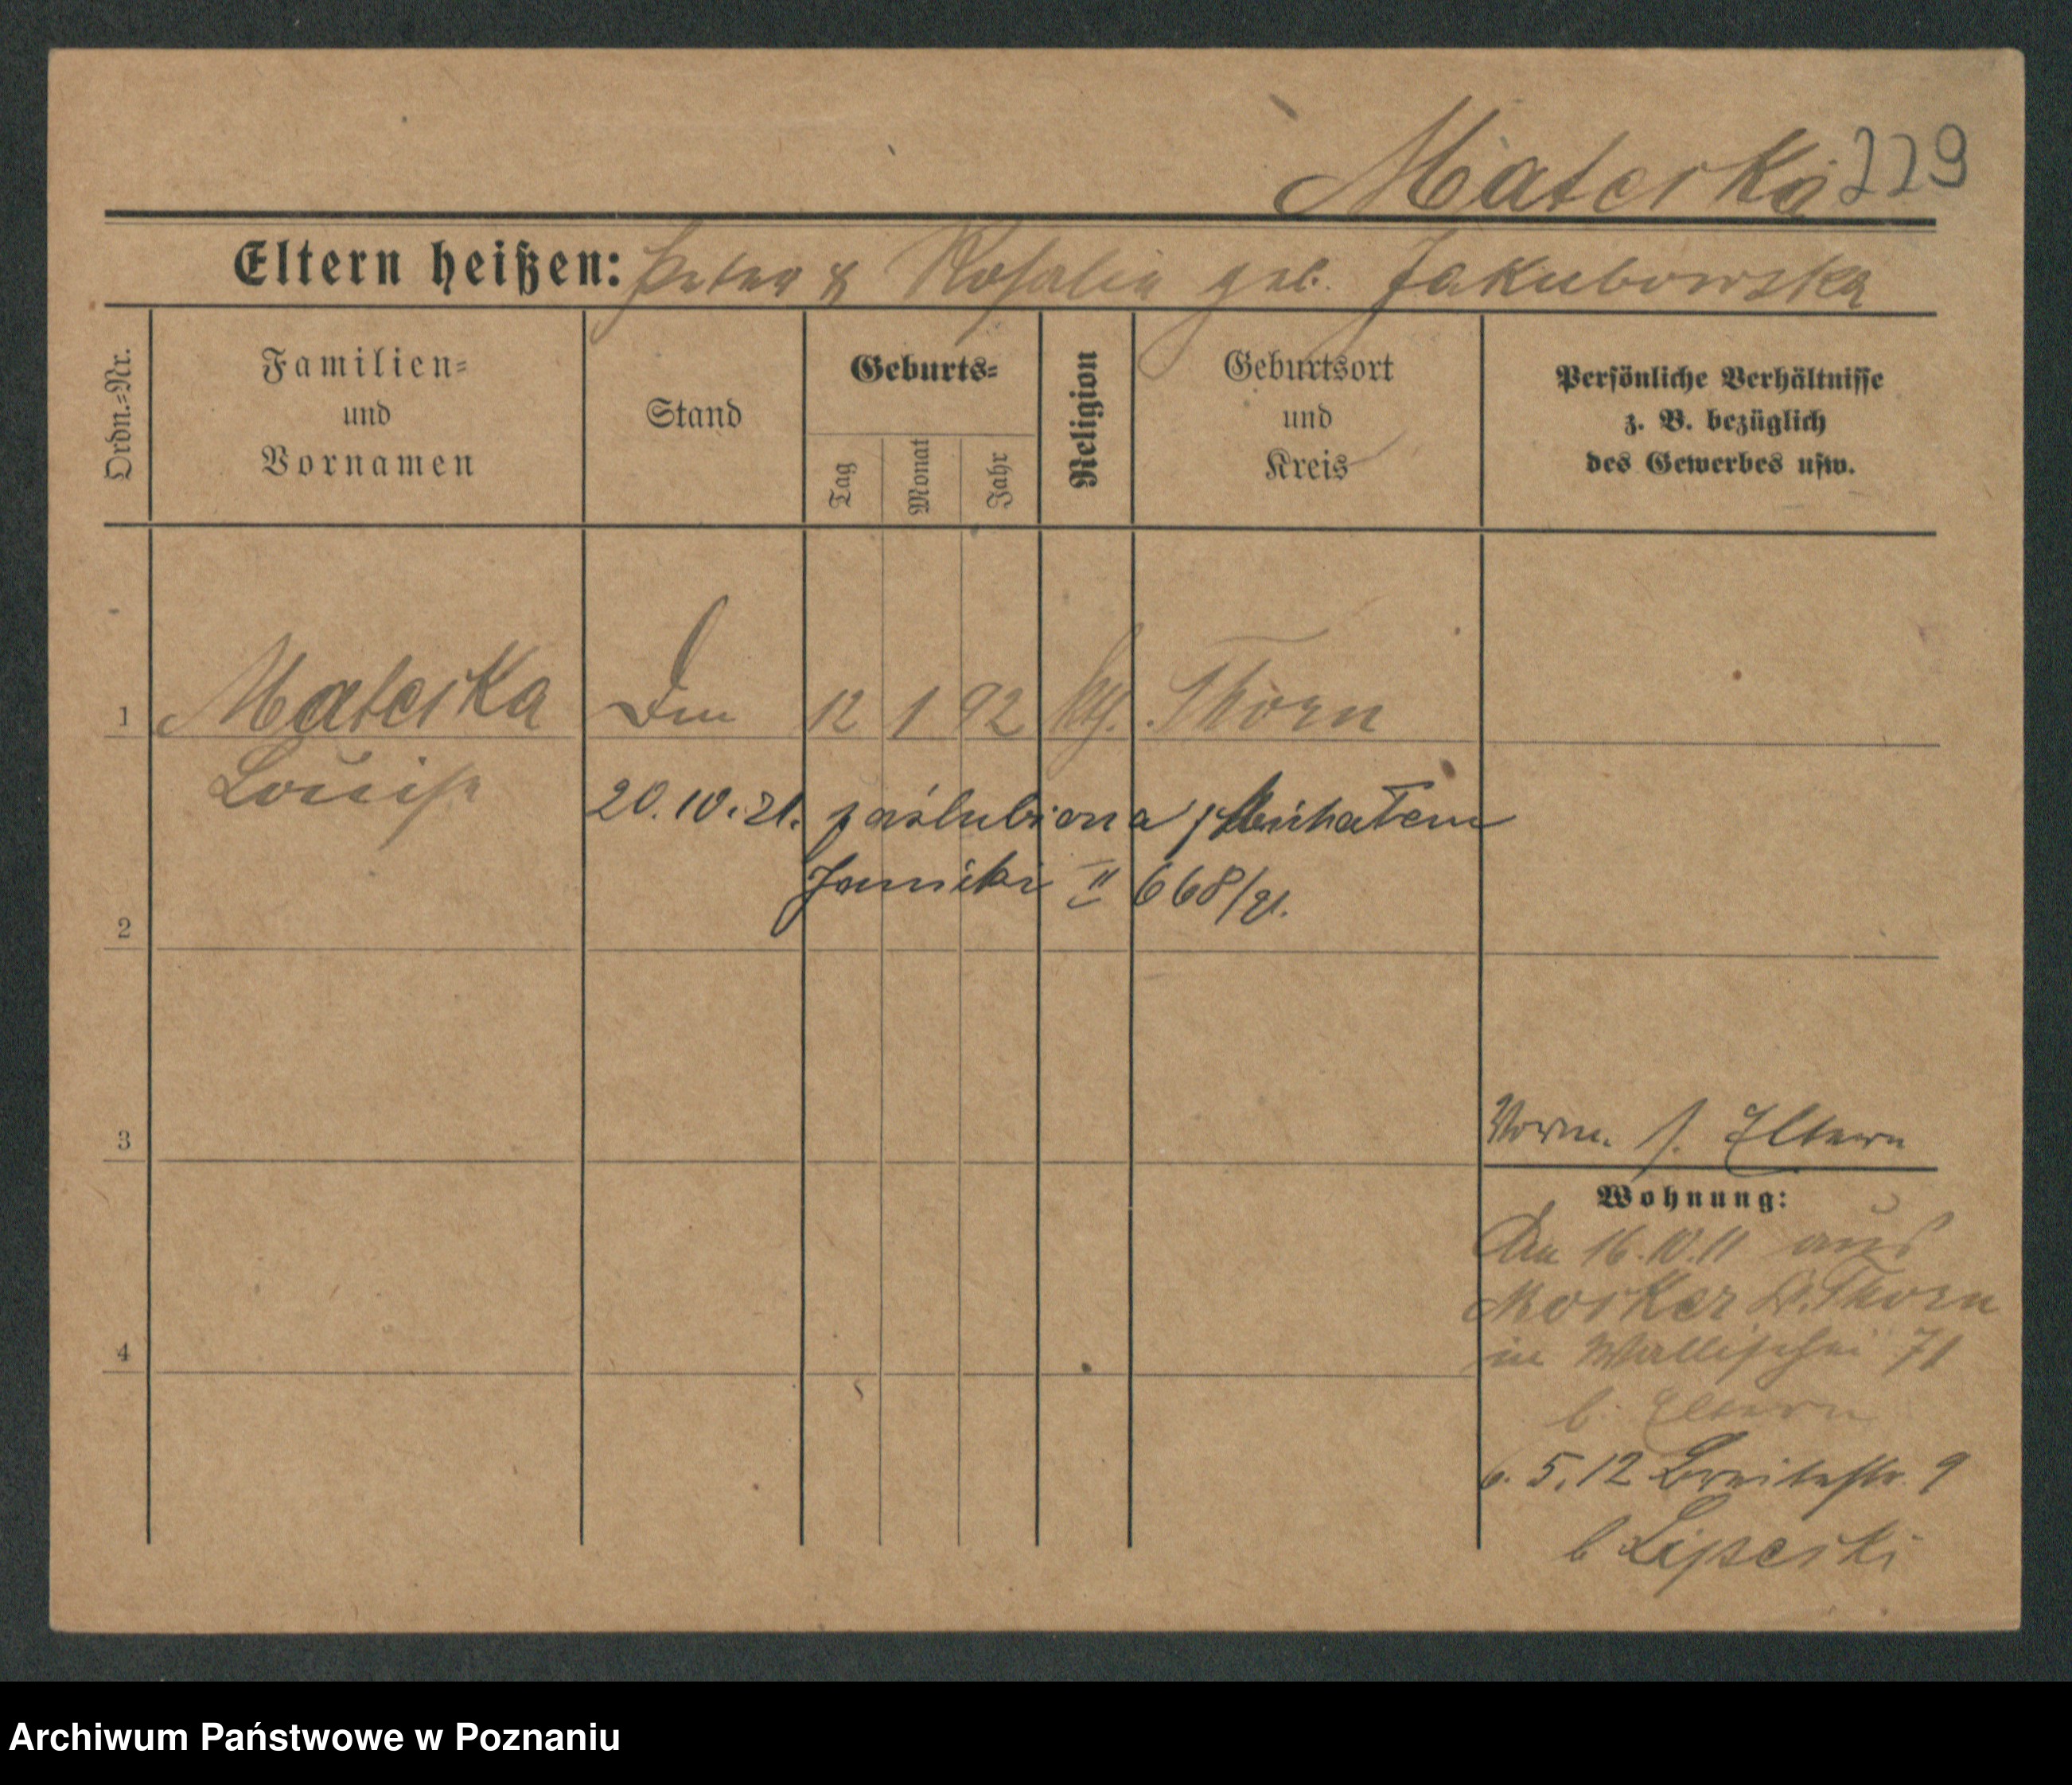 Materka 229
Eltern heißen: Peter & Rosalie geb. Jakubowska
Ordn.-Nr.
Familien-
und
Vornamen
Stand
Geburts-
Tag
Monat
Jahr
Religion
Geburtsort
und
Kreis
Persönliche Verhältnisse
z. B. bezüglich
des Gewerbes usw.
1 Materka 12 1 92 Thorn
Louise
20.10.21. poślubiona Michałem
Janicki II 668/21.
2
3
Vorm. s. Eltern
Wohnung:
Am 16.10.11 aus
Mocker Thorn
in Wallischei 71
4
b. Eltern
6. 5. 12 Breitestr. 9
b
Archiwum Państwowe w Poznaniu